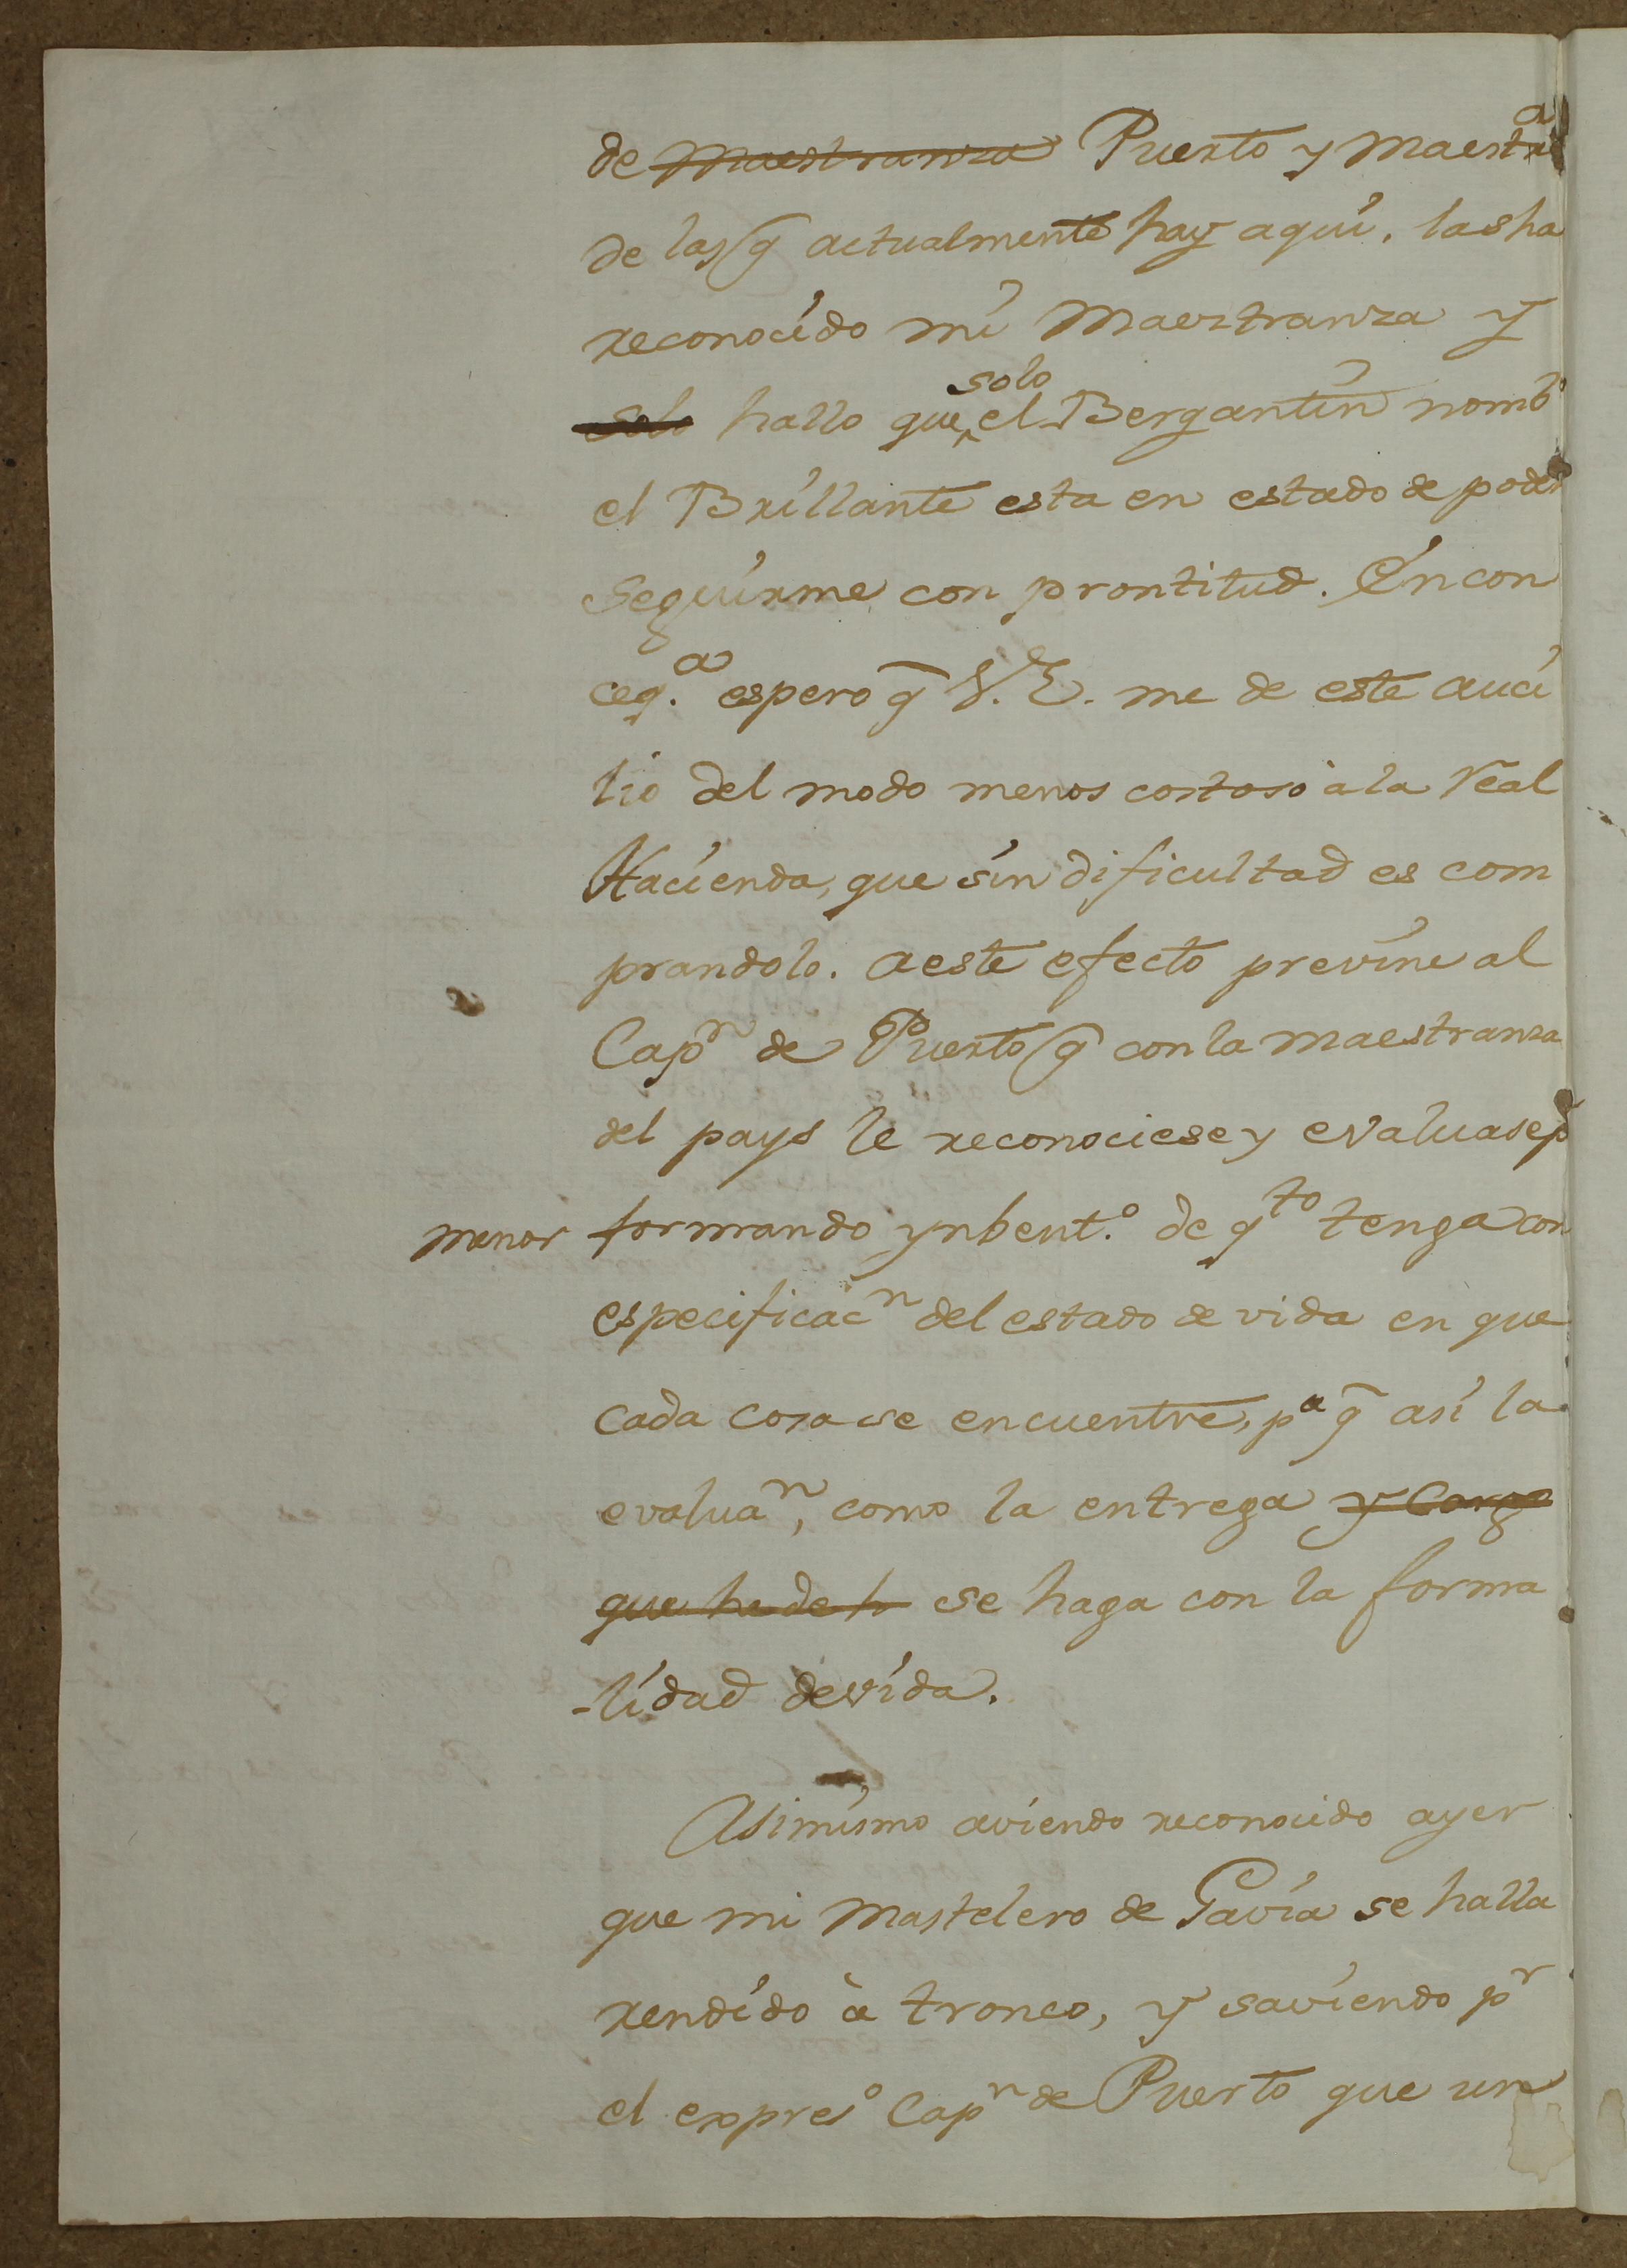 de Maestranza Puerto y Maestra
de las q̃ actualmente hay aqui, las ha
reconocido mi Maestranza y
solo hallo que solo el Bergantin nombº
el Brillante esta en estado de poder
seguirme con prontitud. En con
ceqª espero q̃ V.E. me de este auci
lio del modo menos costoso à la Real
Hacienda, que sin dificultad es com
prandolo. a este efecto previne al
Capn de Puerto q̃ con la maestranza
del pays le reconociese y evaluase pr
menor formando ynbent.º de qto tenga con
especificacn del estado de vida en que
cada cosa se encuentre, pª q̃ asi la
evaluan, como la entrega y Cargo
que he de h se haga con la forma
-lidad devida.
Asimismo aviendo reconocido ayer
que mi Mastelero de Gavia se halla
rendido à tronco, y saviendo pr
el expresº Capn de Puerto que un